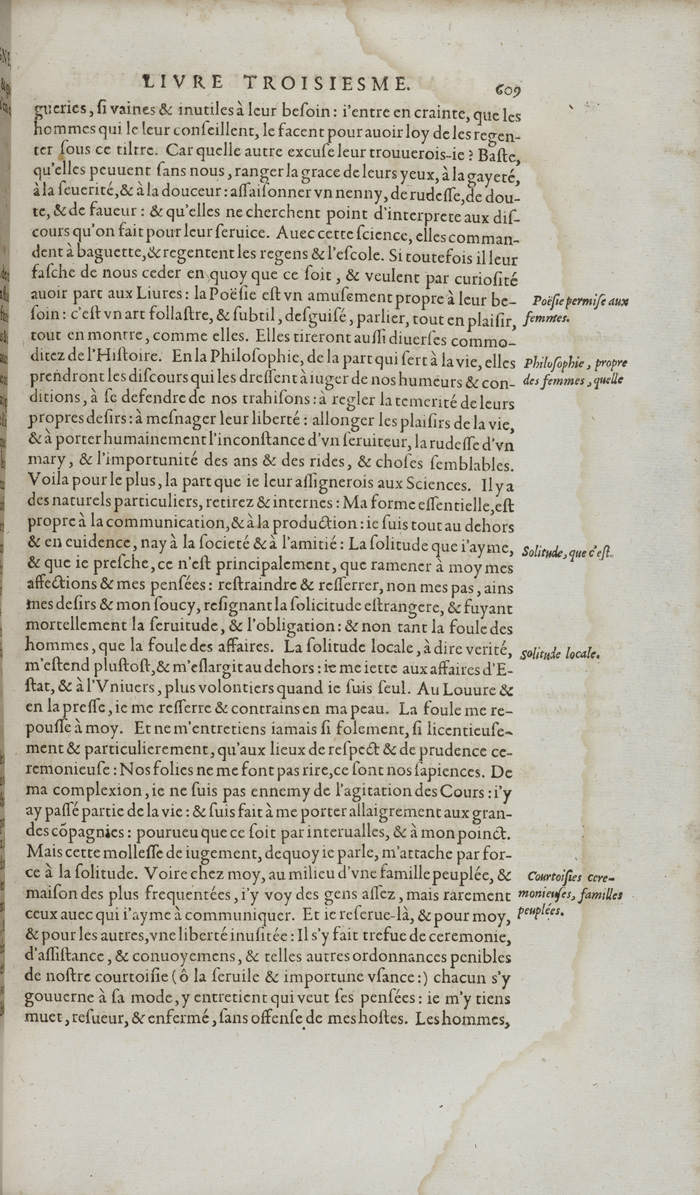 LIVRE TROISIESME. 609
gueries, ſi vaines & inutiles à leur beſoin : i'entre en crainte, que les
hommes qui le leur conſeillent, le facent pour auoir loy de les regen-
ter ſous ce tiltre. Car quelle autre excuſe leur trouuerois-ie ? Baſte,
qu'elles peuuent ſans nous, ranger la grace de leurs yeux, à la gayeté,
à la ſeuerité, & à la douceur : aſſaiſonner vn nenny, de rudeſſe, de dou-
te, & de faueur : & qu'elles ne cherchent point d'interprete aux diſ-
cours qu'on fait pour leur ſeruice. Auec cette ſcience, elles comman-
dent à baguette, & regentent les regens & l'eſcole. Si toutefois il leur
faſche de nous ceder en quoy que ce ſoit, & veulent par curioſité
auoir part aux Liures : la Poëſie eſt vn amuſement propre à leur be-
Poëſie permiſe aux
ſoin : c'eſt vn art follaſtre, & ſubtil, deſguiſé, parlier, tout en plaiſir,
femmes.
tout en montre, comme elles. Elles tireront auſſi diuerſes commo-
ditez de l'Hiſtoire. En la Philoſophie, de la part qui ſert à la vie, elles
Philoſophie, propre
prendront les diſcours qui les dreſſent à iuger de nos humeurs & con-
des femmes, quelle
ditions, à ſe defendre de nos trahiſons : à regler la temerité de leurs
propres deſirs : à meſnager leur liberté : allonger les plaiſirs de la vie,
& à porter humainement l'inconſtance d'vn ſeruiteur, la rudeſſe d'vn
mary, & l'importunité des ans & des rides, & choſes ſemblables.
Voila pour le plus, la part que ie leur aſſignerois aux Sciences. Il y a
des naturels particuliers, retirez & internes : Ma forme eſſentielle, eſt
propre à la communication, & à la production : ie ſuis tout au dehors
& en euidence, nay à la ſocieté & à l'amitié : La ſolitude que i'ayme,
Solitude, que c'eſt.
& que ie preſche, ce n'eſt principalement, que ramener à moy mes
affections & mes penſées : reſtraindre & reſſerrer, non mes pas, ains
mes deſirs & mon ſoucy, reſignant la ſolicitude eſtrangere, & fuyant
mortellement la ſeruitude, & l'obligation : & non tant la foule des
hommes, que la foule des affaires. La ſolitude locale, à dire verité,
Solitude locale.
m'eſtend pluſtoſt, & m'eſlargit au dehors : ie me iette aux affaires d'E-
ſtat, & à l'Vniuers, plus volontiers quand ie ſuis ſeul. Au Louure &
en la preſſe, ie me reſſerre & contrains en ma peau. La foule me re-
pouſſe à moy. Et ne m'entretiens iamais ſi folement, ſi licentieuſe-
ment & particulierement, qu'aux lieux de reſpect & de prudence ce-
remonieuſe : Nos folies ne me font pas rire, ce ſont nos ſapiences. De
ma complexion, ie ne ſuis pas ennemy de l'agitation des Cours : i'y
ay paſſé partie de la vie : & ſuis fait à me porter allaigrement aux gran-
des cõpagnies : pourueu que ce ſoit par interualles, & à mon poinct.
Mais cette molleſſe de iugement, dequoy ie parle, m'attache par for-
ce à la ſolitude. Voire chez moy, au milieu d'vne famille peuplée, &
Courtoiſies cere-
maiſon des plus frequentées, i'y voy des gens aſſez, mais rarement
monieuſes, familles
ceux auec qui i'ayme à communiquer. Et ie reſerue-là, & pour moy,
peuplées.
& pour les autres, vne liberté inuſitée : Il s'y fait trefue de ceremonie,
d'aſſiſtance, & conuoyemens, & telles autres ordonnances penibles
de noſtre courtoiſie (ô la ſeruile & importune vſance :) chacun s'y
gouuerne à ſa mode, y entretient qui veut ſes penſées : ie m'y tiens
muet, reſueur, & enfermé, ſans offenſe de mes hoſtes. Les hommes,